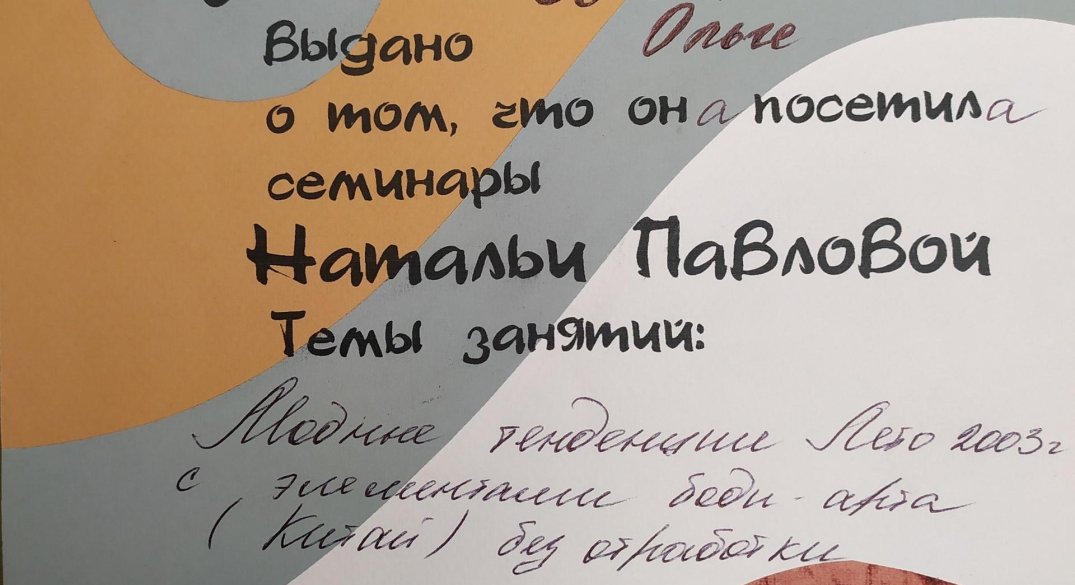 Выдано Ольге
о том, что она посетила
семинары
Натальи Павловой
Темы занятий:
Модные тенденции Лето 2003г
с элементами боди-арта
(Китай) без отработки